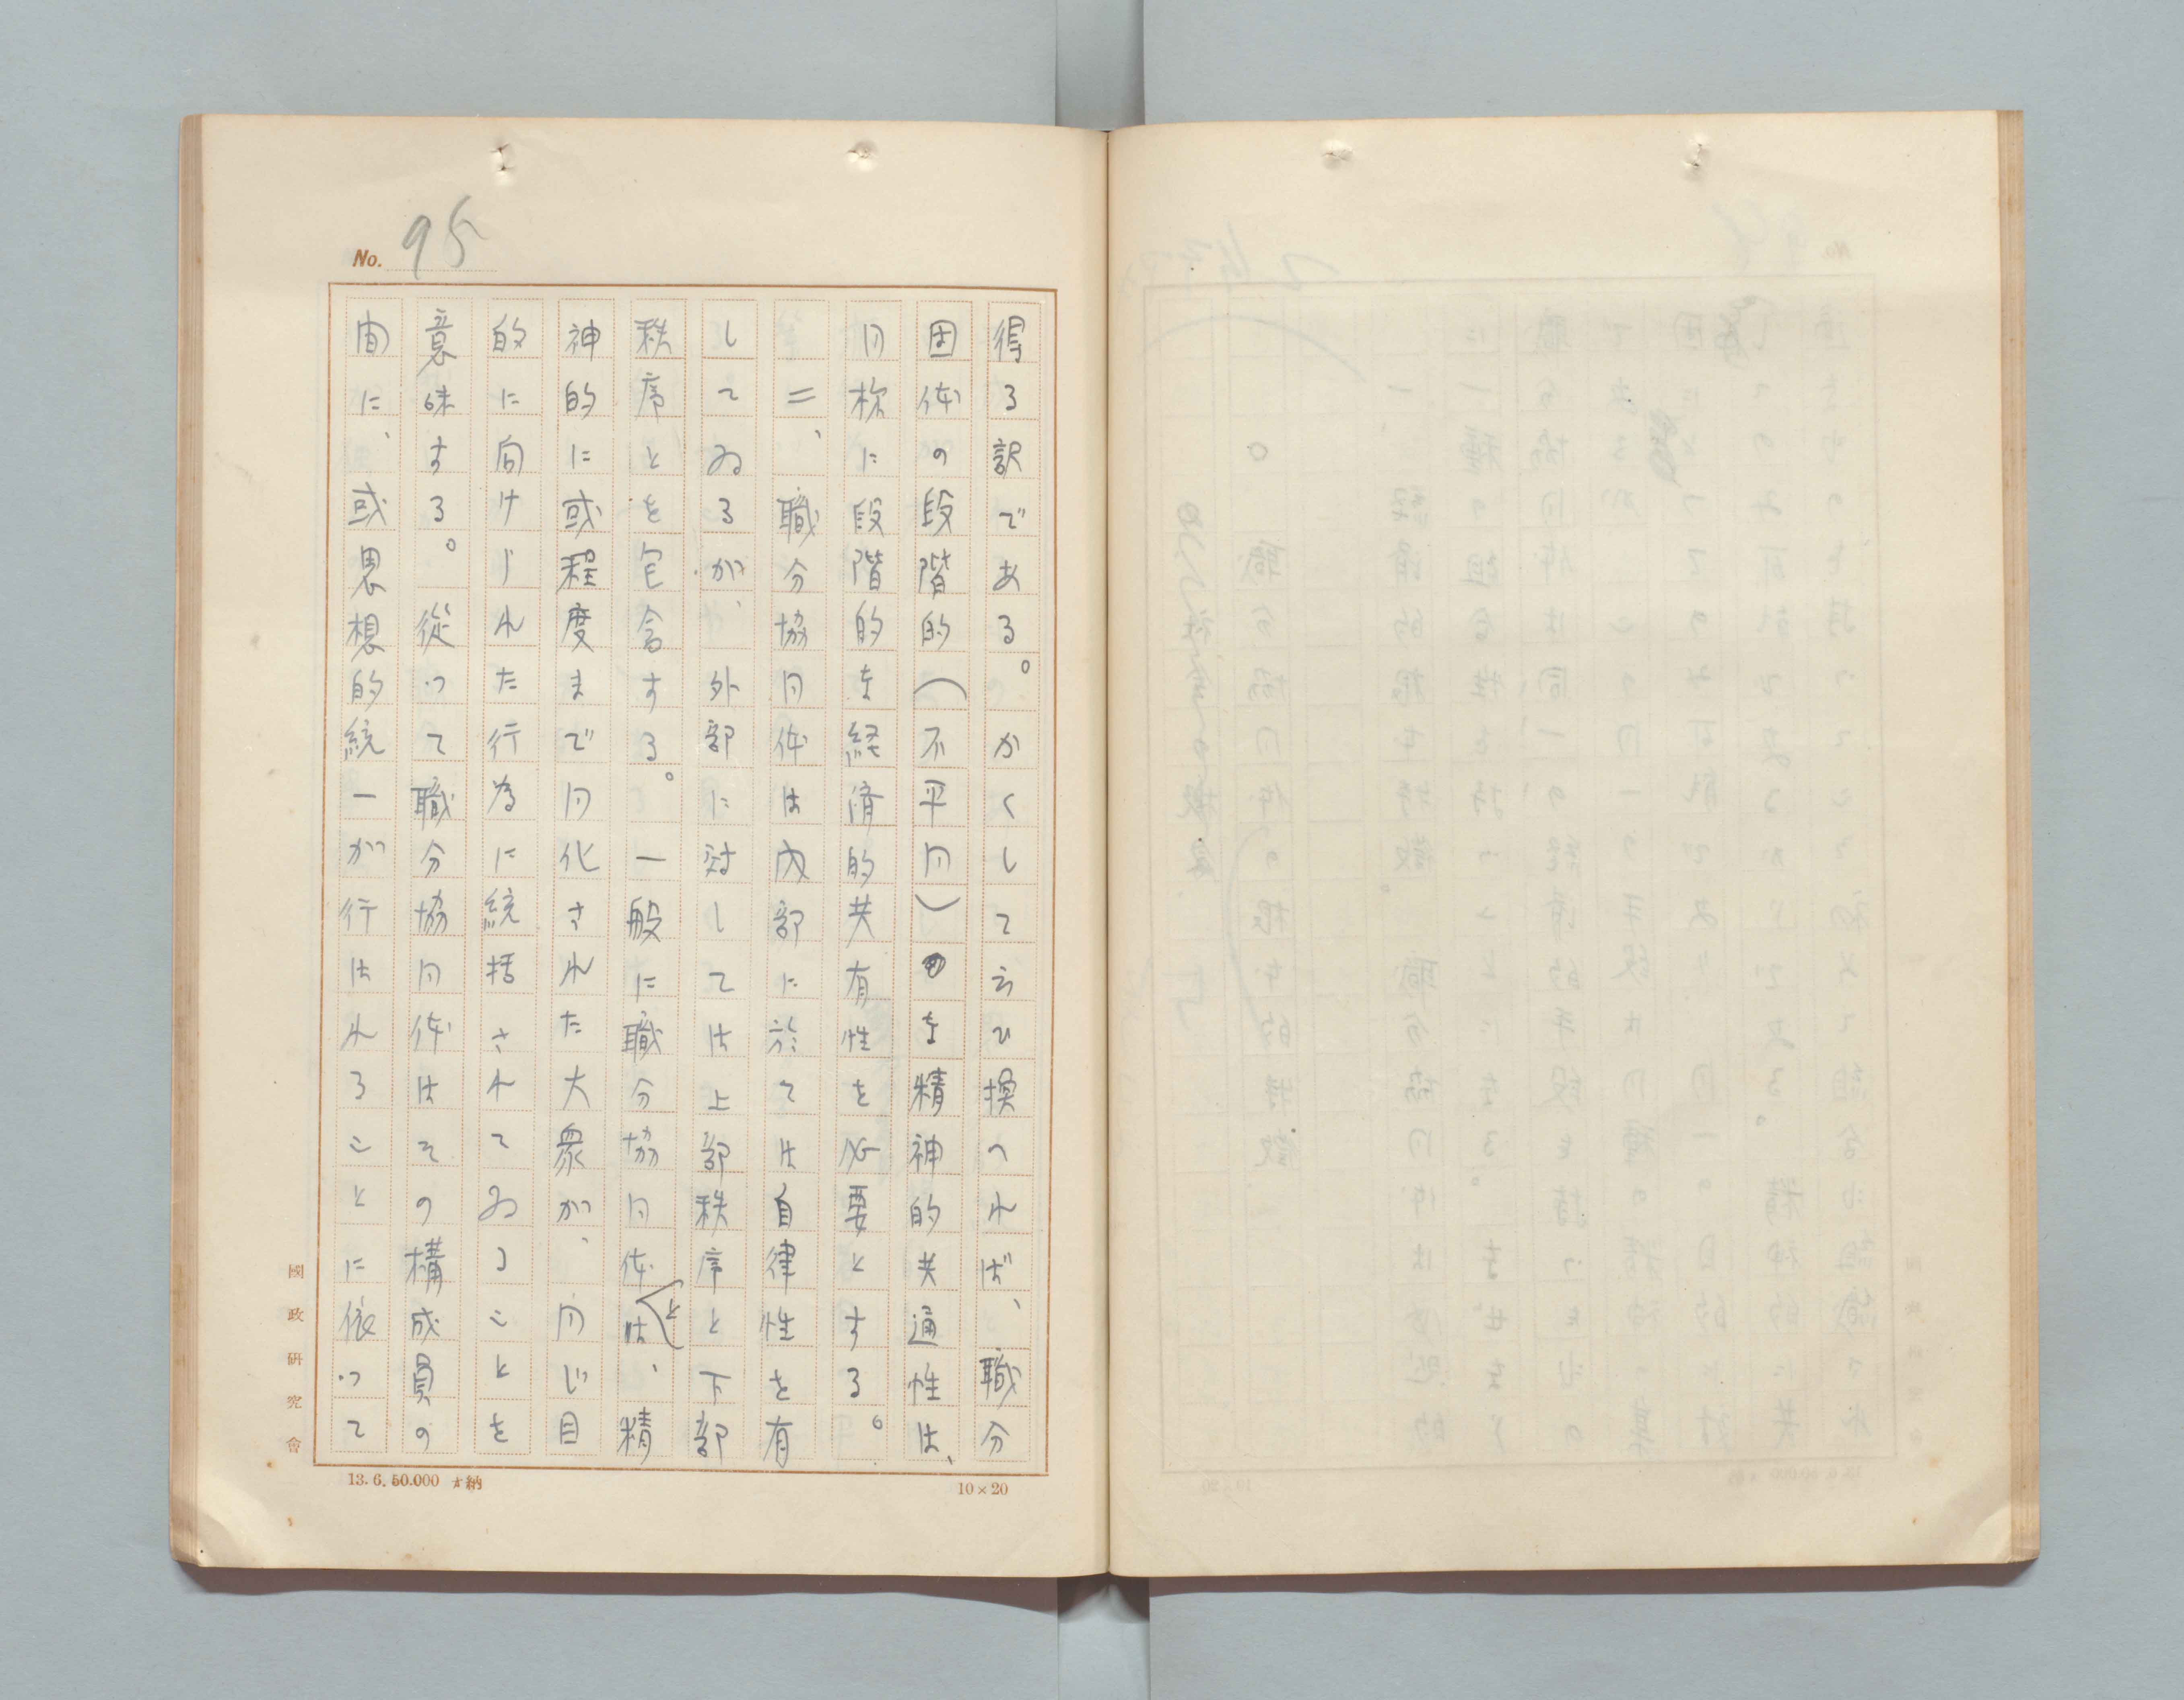 No. 95
得る訳である。かくして云ひ換へれば、職分
団体の段階的（不平同）な精神的共通性は、
同様に段階的な経済的共有性を必要とする。
二、職分協同体は内部に於ては自律性を有
してゐるが、外部に対しては上部秩序と下部
秩序とを包含する。一般に職分協同体とは、精
神的に或程度まで同化された大衆が、同じ目
的に向けられた行為に統括されてゐることを
意味する。従つて職分協同体はその構成員の
間に、或思想的統一が行はれることに依つて
國政研究會
13.6.50.000 ｵ納
10×20